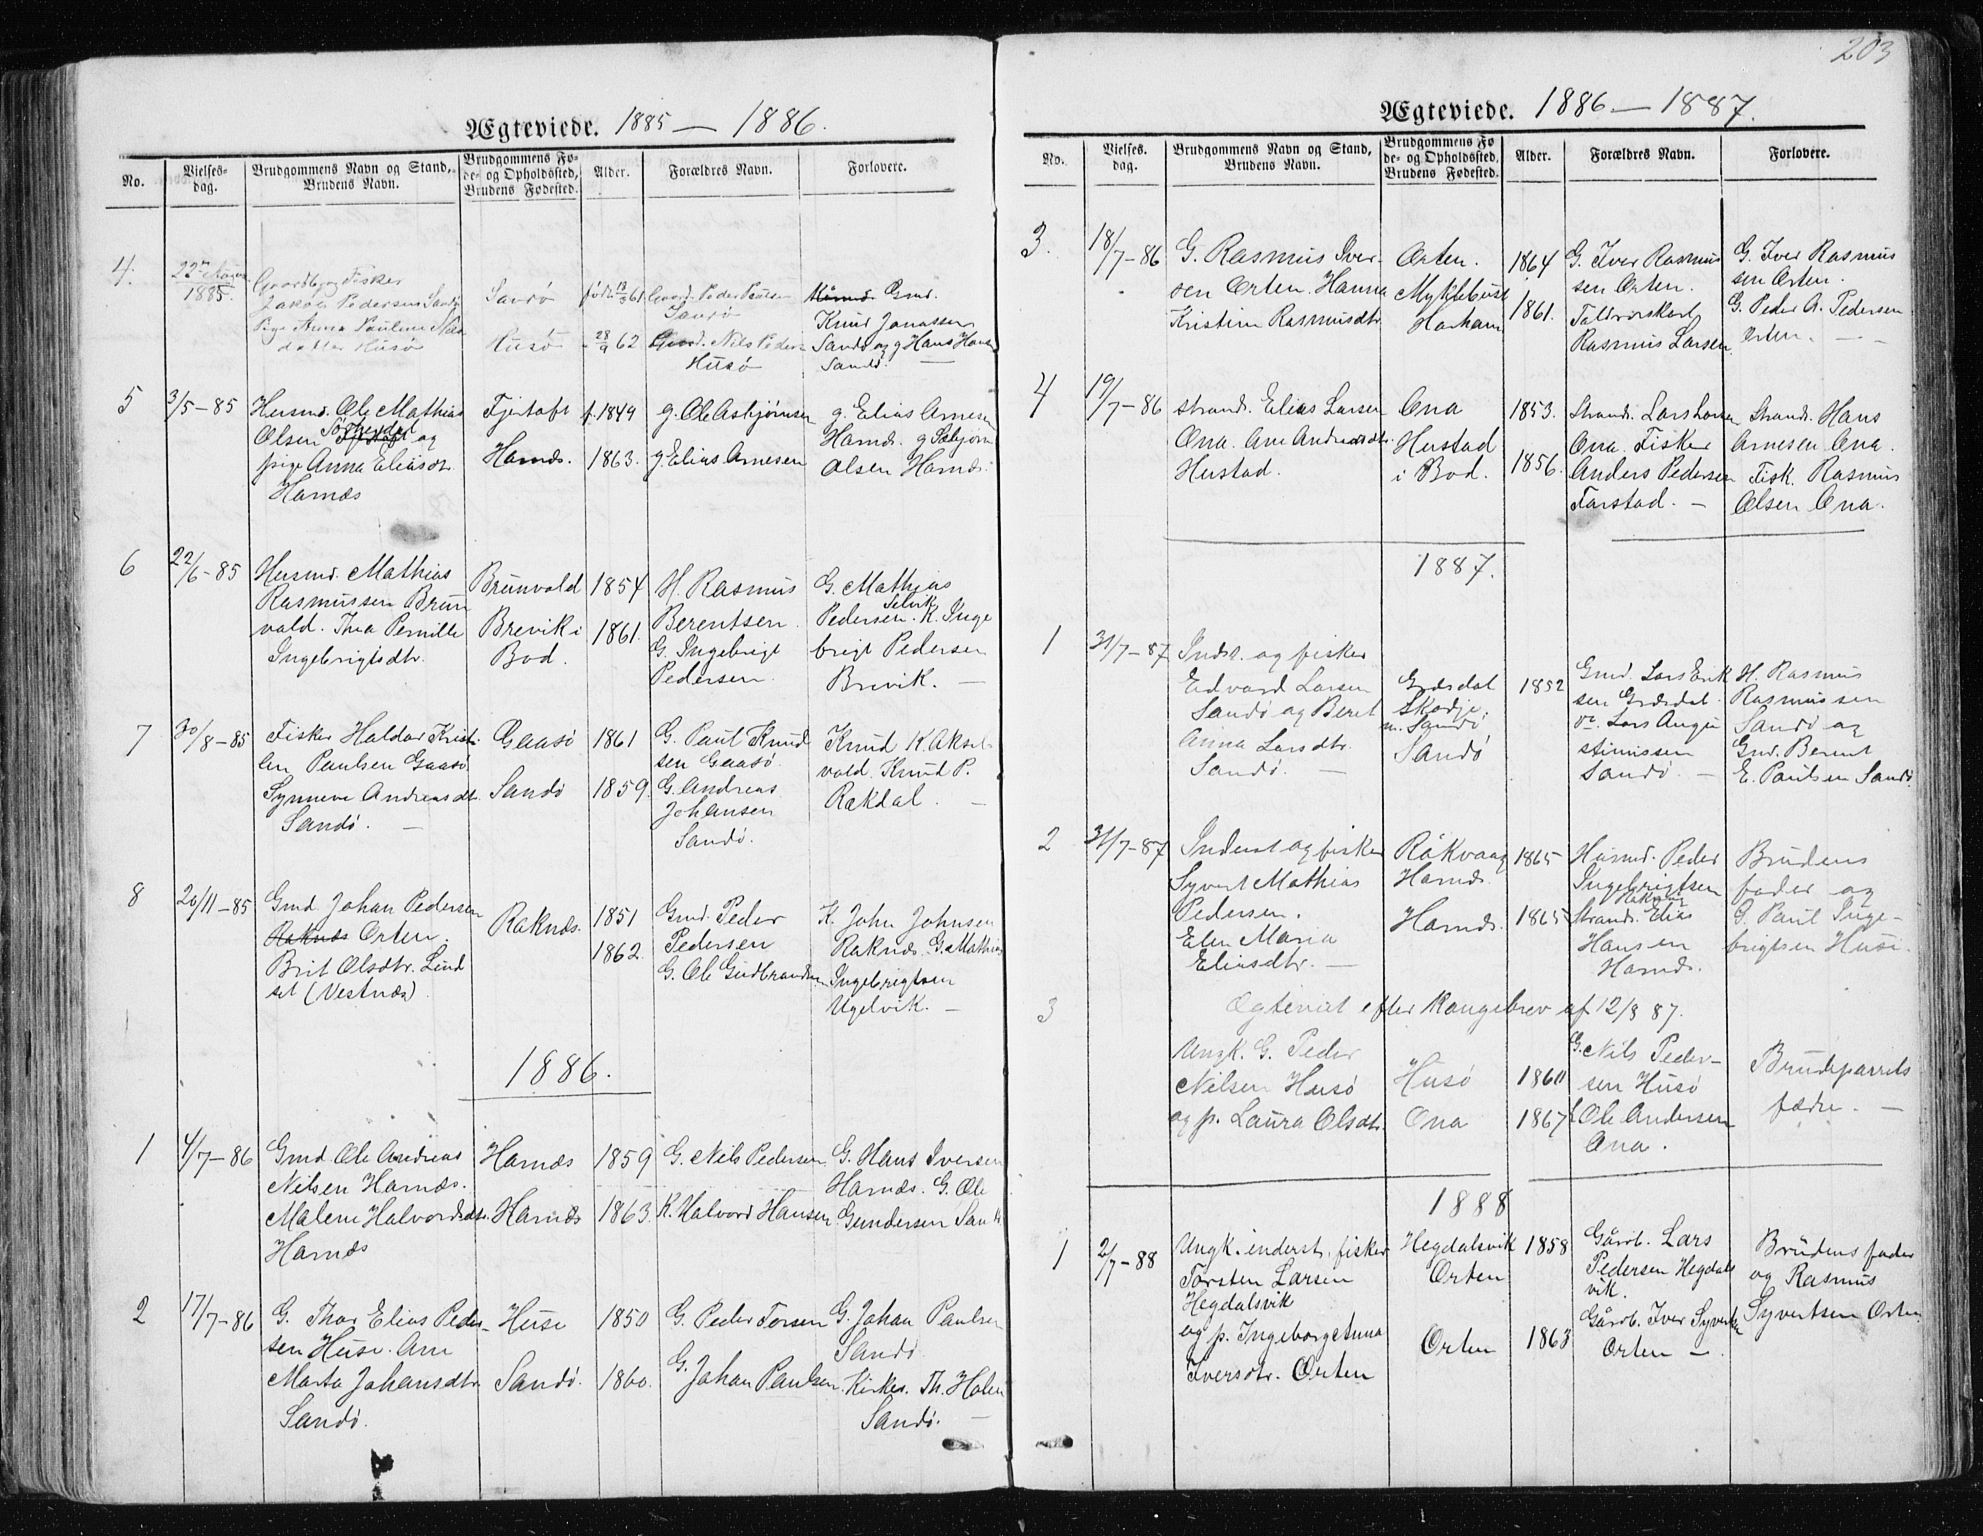 203
Ægteviede. 1885 — 1886.
No.
Vielses-
dag.
Brudgommens Navn og Stand,
Brudens Navn.
Brudgommens Fø-
de- og Opholdssted,
Brudens Fødested.
Alder.
Forældres Navn.
Forlovere.
4.
22de
1885.
Gaardbr og Fisker
Jakob Pedersen Sandø
Pige Anna Pauline Nils
datter Husø
Sandø
Husø
født 61
28/9 62
Gaard. Peder Paulsen
Sandø
Gaard. Nils Peders
Husø
Gmd.
Knud Jonassen
Sandø og g Hans Hans
Sandø.
5
3/5-85
Husmd. Ole Mathias
Olsen og
pige Anna Eliasdtr
Harnæs
Fjørtoft
Harnæs.
f. 1849
1863.
g. Ole Asbjørnsen
g Elias Arnesen
g. Elias Arnesen
Harnæs. g Asbjørn
Olsen Harnæs.
6
22/6-85
Husmd. Mathias
Rasmussen Brun
vald. Thea Pernille
Ingebrigtsdtr.
Brunvald
Brevik i
Bod.
1854
1861.
H. Rasmus
Berentsen.
G. Ingebrigt
Pedersen.
G. Mathias
Selvik
Pedersen. K. Inge
brigt Pedersen
Brevik. —
7
30/8-85
Fisker Haldor Kristi
an Paulsen Gaasø
Synneve Andreasdt.
Sandø. —
Gaasø
Sandø
1861
1859.
G. Paul Knud
sen Gaasø.
G. Andreas
Johansen
Sandø.
Knud K. Aksel
vold. Knud P.
Rakdal. —
8
20/11-85
Gmd. Johan Pedersen
Raknæs Orten.
Brit Olsdtr. Lind
set (Vestnæs).
Raknæs.
1851
1862.
Gmd. Peder
Pedersen
G. Ole Gudbrandsen
K. John Johnsen
Raknæs. G. Mathias
Ingebrigtsen
Ugelvik. —
1886.
1
4/7-86
Gmd Ole Andreas
Nilsen Harnæs.
Malene Halvordsdtr.
Harnæs
Harnæs
Harnæs
1859
1863.
G. Nils Pedersen
K. Halvord Hansen
G. Hans Iversen
Harnæs. G. Ole
Gundersen
2
17/7-86
G. Thor Elias Peder-
sen Huse. Ane
Marta Johansdtr
Sandø.
Huse
Sandø.
1850
1860.
G. Peder Torsen
G. Johan Paulsen.
G. Johan Paulsen
Sandø.
Kirkes. Th. Holen
Sandø. —
Ægteviede. 1886 — 1887.
No.
Vielses-
dag.
Brudgommens Navn og Stand,
Brudens Navn.
Brudgommens Fø
de- og Opholdssted,
Brudens Fødested.
Alder.
Forældres Navn.
Forlovere.
3.
18/7-86
G. Rasmus Iver-
sen Orten. Hanna
Kristine Rasmusdtr.
Orten.
Myklebust
Harham
1864
1861.
G. Iver Rasmus
sen Orten.
Foldrørskarl
Rasmus Larsen
G. Iver Rasmus
sen Orten.
G. Peder A. Pedersen
Orten. — —
4
19/7-86
Strand. Elias Larsen
Ona. Ane Andersdtr.
Hustad.
Ona
Hustad
i Bod.
1853.
1856.
Strand. Lars Larsen
Ona. Fisker
Anders Pedersen
Farstad. —
Strand. Hans
Arnesen Ona.
Fisk. Rasmus
Olsen Ona.
1887.
1
31/7-87
Inds. og fisker
Edvard Larsen
Sandø og Beret
Anna Larsdtr.
Sandø. —
Grøsdal
Skodje.
n. Sandø
Sandø
1852
Gmd. Lars Erik
sen Grøsdal.
Lars Augu
stinussen
Sandø. —
H. Rasmus
Rasmussen
Sandø og
Gmd. Berent
E. Paulsen Sandø.
2
31/7-87
Inderst og fisker
Syvert Mathias
Pedersen.
Elen Maria
Eliasdtr. —
Råkvaag
Harnæs.
Harnæs.
1865
1865
Husmd. Peder
Ingebrigtsen
Strand. Elias
Hansen
Harnæs.
Brudens
fader og
G. Paul Inge-
brigtsen Huse.
3
Ægteviet efter Kongebrev af 12/8 87.
Ungk. G. Peder
Nilsen Husø
og p. Laura Olsdtr.
Husø
Ona
1860
1867
G. Nils Peder-
sen Husø
Ole Andersen
Ona.
Brudeparrets
fædre. —
1888
1
2/7-88
Ungk. inderst, fisker
Torsten Larsen
Hegdalsvik
og p. Ingeborg Anna
Iversdtr. Orten
Hegdalsvik
Orten
Orten
1858
1863
Gårb. Lars
Pedersen Hegdals
vik.
Gårb. Iver Syverts
Orten —.
Brudens fader
og Rasmus
Syvertsen Orten.